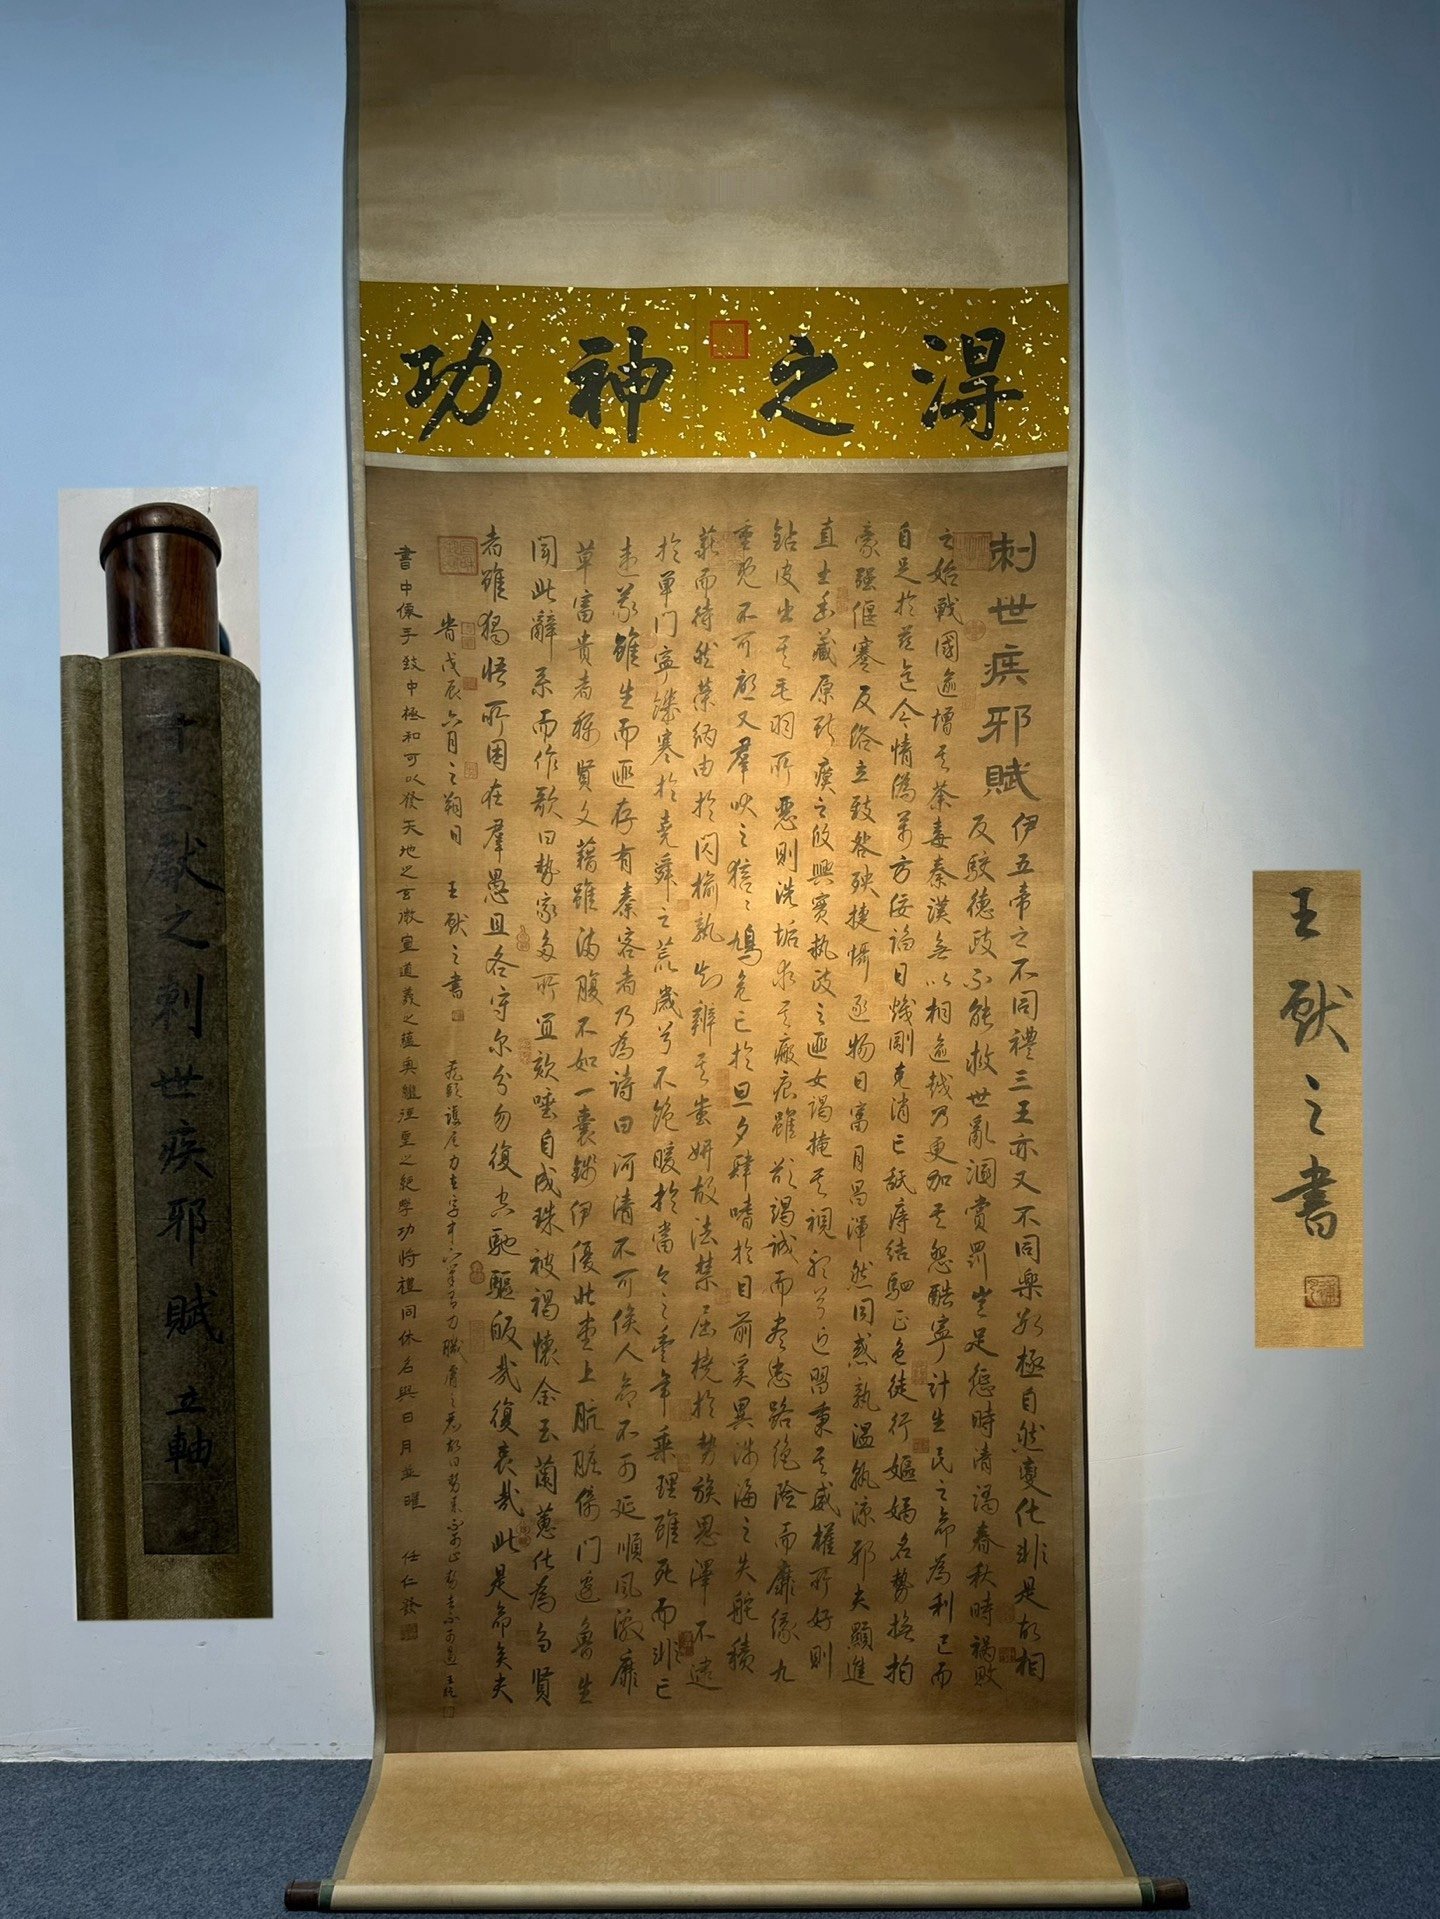 得之神功
刺世疾邪賦
伊五帝之不同禮三王亦又不同樂數極自然變化非是故相
反駁德政不能救世亂溷賞罰豈足懲時清濁春秋時禍敗
之始戰國逾增其荼毒秦漢無以相逾越乃更加其怨酷寧計生民之命為利己而
自足於茲迄今情偽萬方佞諂日熾剛克消亡舐痔結駟正色徒行嫗媀名勢撫拍
豪强偃蹇反俗立致咎殃捷懾逐物日富月昌渾然同惑孰溫孰涼邪夫顯進
直士幽藏原斯瘼之攸興實執政之匪女謁掩其視聽兮近習秉其威權所好則
鉆皮出其毛羽所惡則洗垢求其瘢痕雖欲竭誠而盡忠路絕險而靡緣九
重既不可啟又羣吠之狺〻安危亡於旦夕肆嗜於目前奚異涉海之失舵積
薪而待然榮納由於閃揄孰知辨其蚩妍故法禁屈橈於勢族恩澤不逮
於單門寧饑寒於堯舜之荒歲兮不飽暖於當今之豐年乘理雖死而非亡
違義雖生而匪存有秦客者乃為詩曰河清不可俟人命不可延順風激靡
草富貴者稱賢文藉雖滿腹不如一囊錢伊優北堂上骯髒倚門邊魯生
聞此辭系而作歌曰勢家多所宜欬唾自成珠被褐懷金玉蘭蕙化為芻賢
者雖獨悟所困在羣愚且各守爾分勿復空馳驅哀哉復哀哉此是命矣夫
昔戊辰六月之朔日 王獻之書
書中懷乎致中極和可以發天地之玄微宣道義之蘊奧繼往聖之絕學功將禮同休名與日月並曜 任仁發
王獻之刺世疾邪賦 立軸
王獻之書